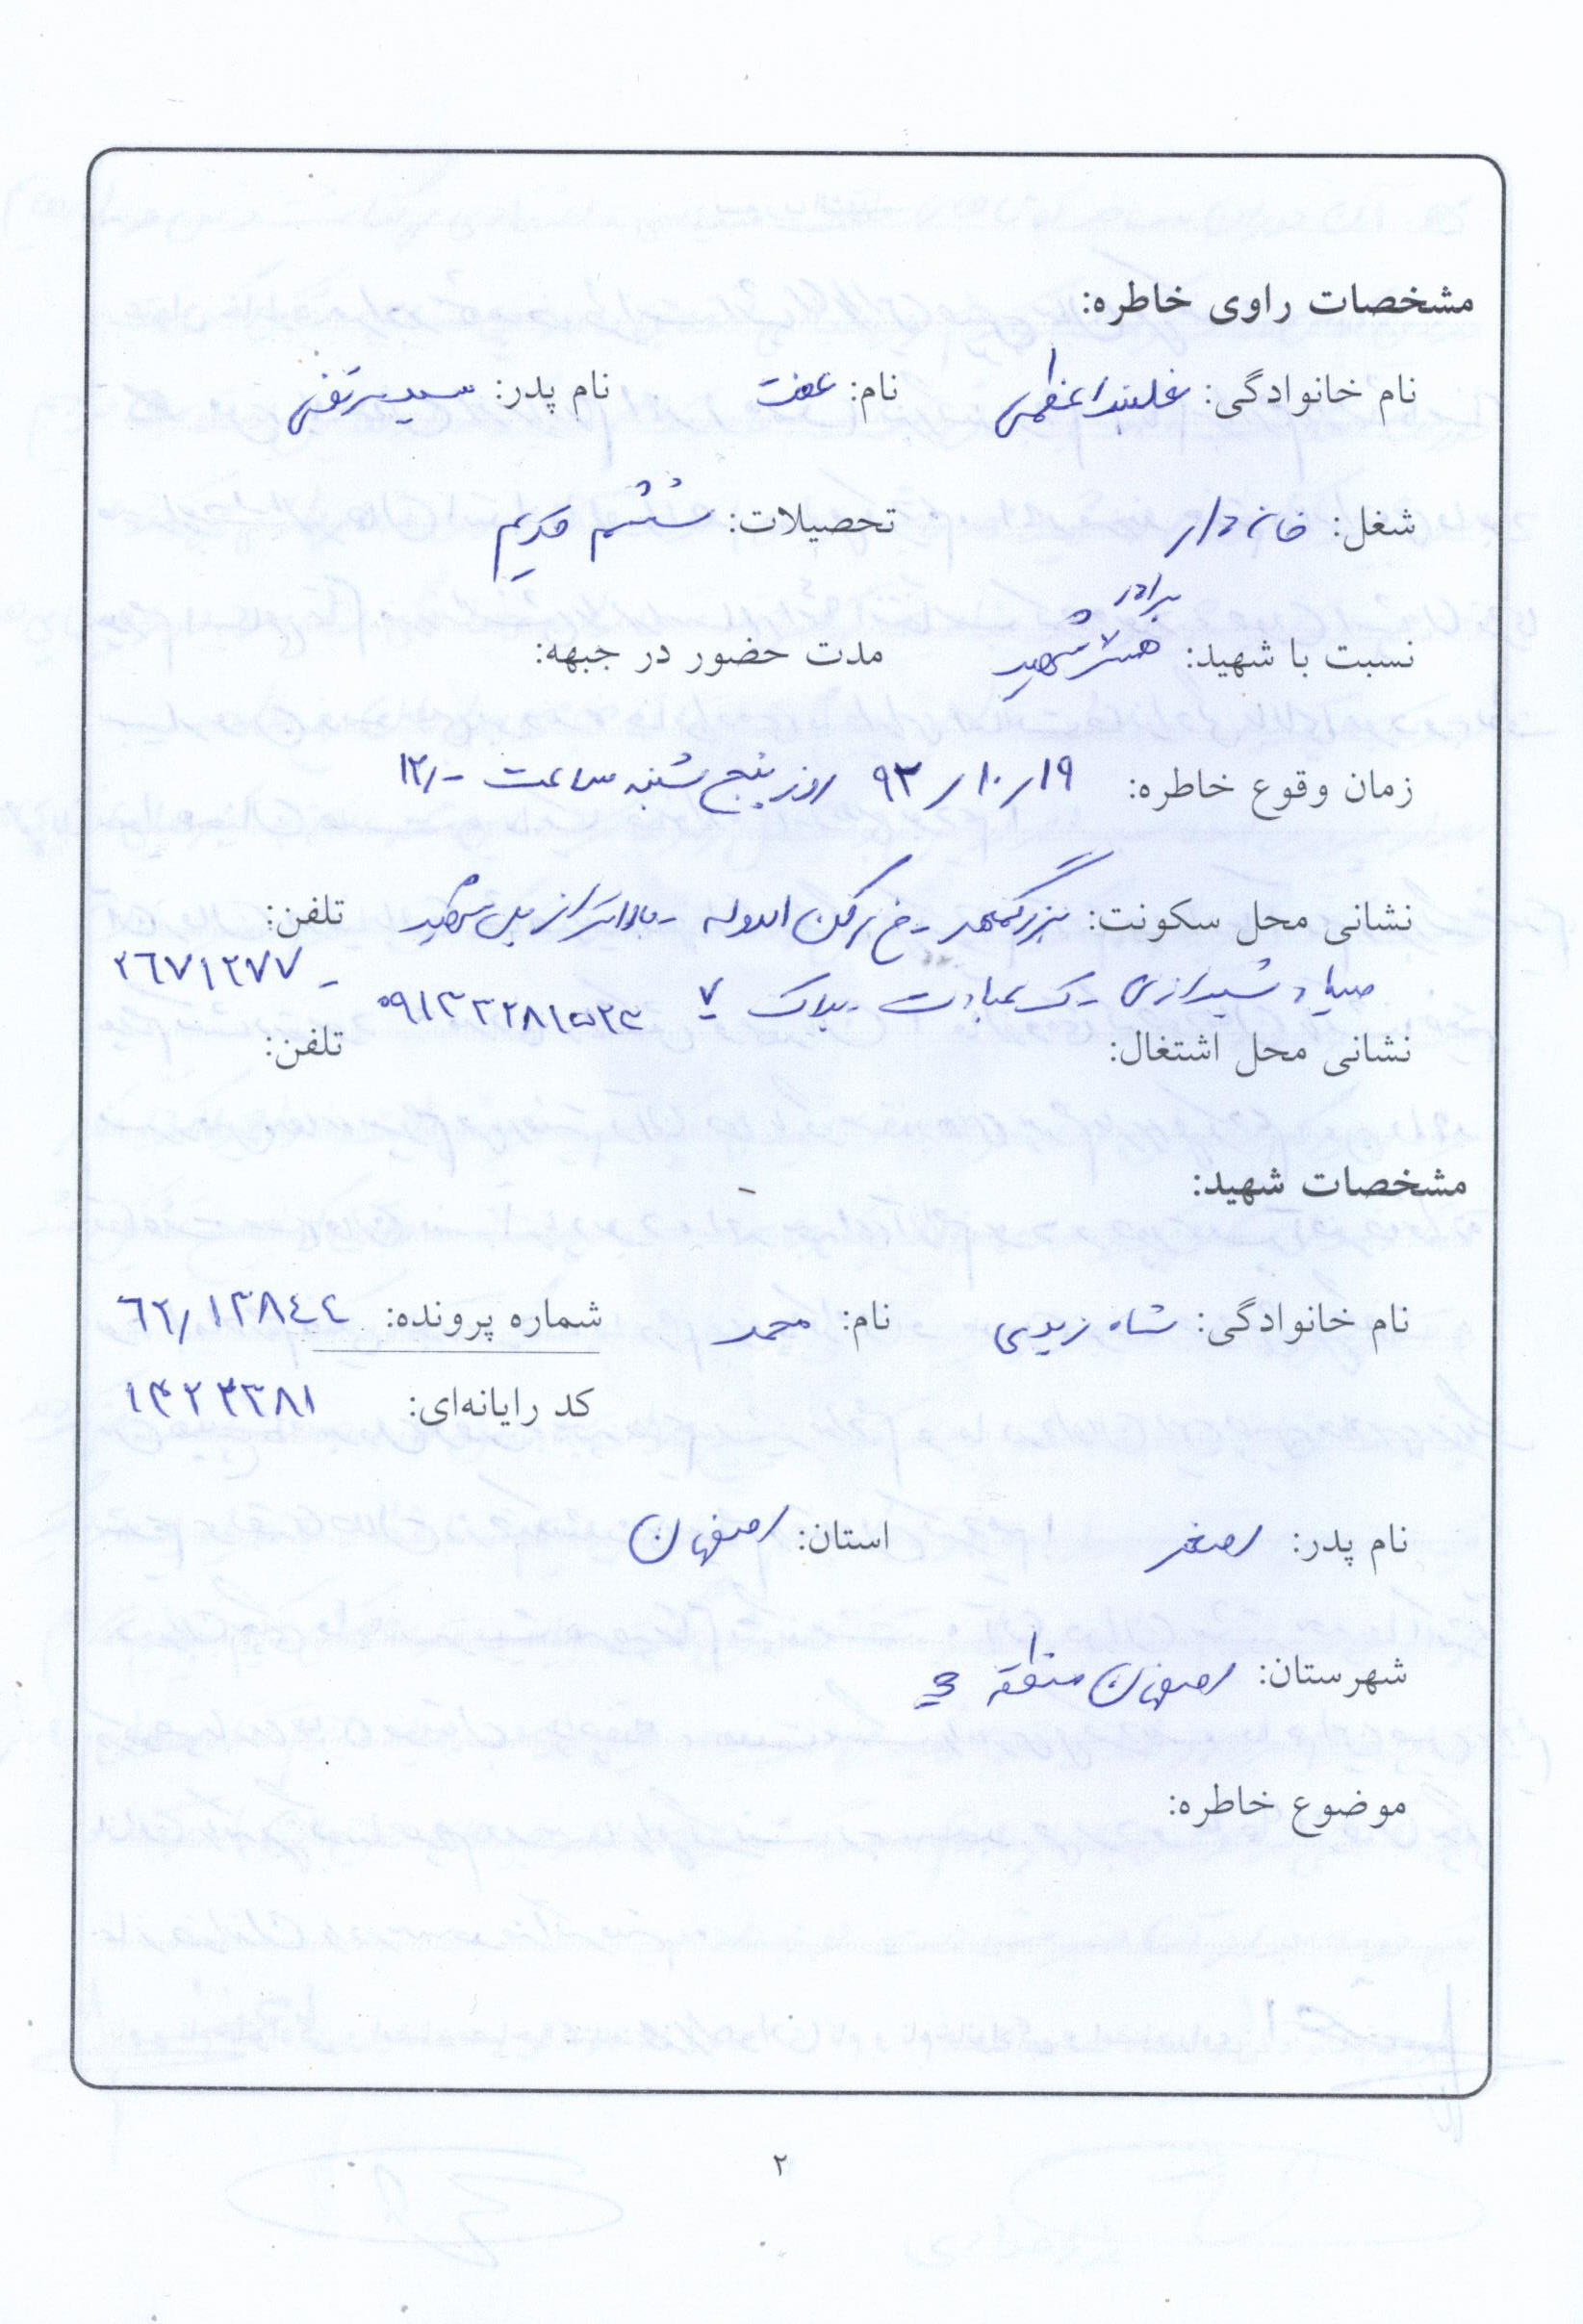 مشخصات راوی خاطره:
نام خانوادگی: نام: عفت نام پدر: سید مرتضی
شغل: خانه دار تحصیلات: ششم قدیم
برادر
نسبت با شهید: همسر شهید مدت حضور در جبهه:
زمان وقوع خاطره: ۹۳/۱۰/۱۹ روز پنج شنبه ساعت ۱۲/۰
نشانی محل سکونت: بزرگمهر - خ رکن الدوله - بالاتر از پل شهید تلفن:
صیاد شیرازی - ک عبادت - پلاک ۷ ۰۹۱۳۳۲۸۱۵۲۳ - ۲۶۷۱۲۷۷
نشانی محل اشتغال: تلفن:
مشخصات شهید:
نام خانوادگی: شاه زیدی نام: محمد شماره پرونده: ۶۲/۱۳۸۴۴
کد رایانه‌ای: ۱۴۲۳۳۸۱
نام پدر: اصغر استان: اصفهان
شهرستان: اصفهان منطقه ج
موضوع خاطره:
۲